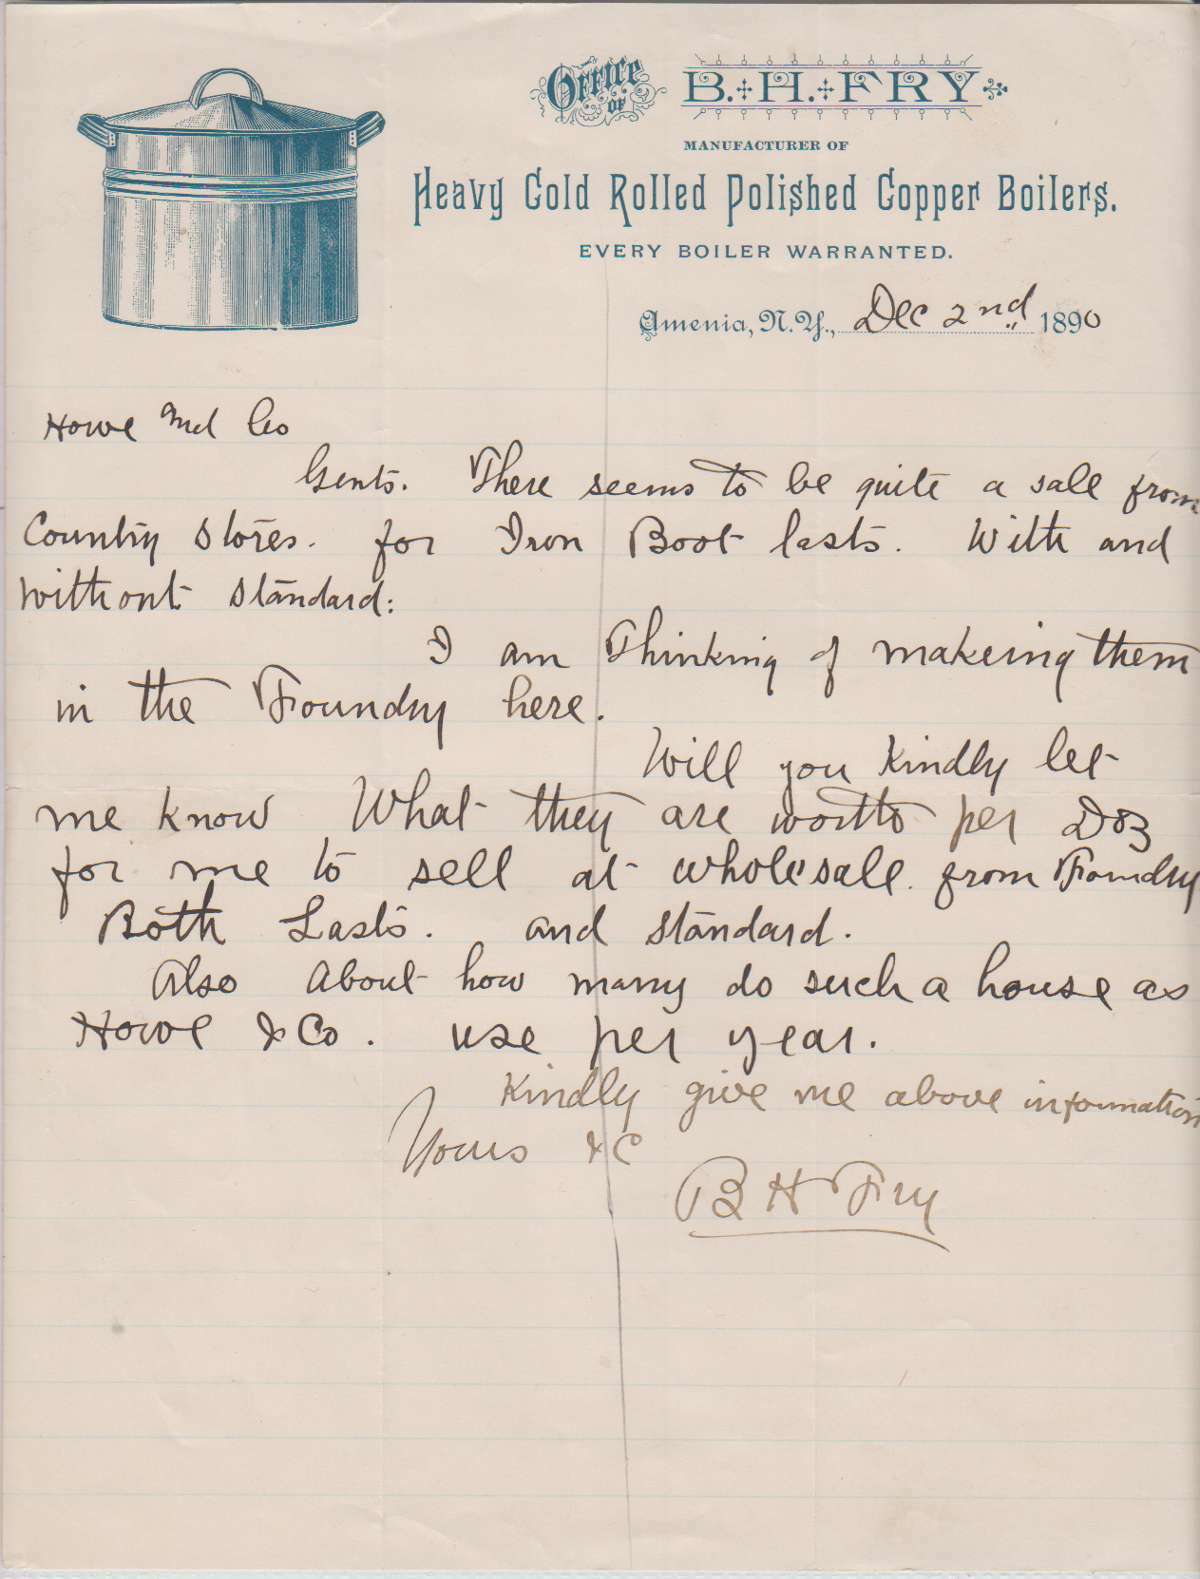 OFFICE OF B. H. FRY
MANUFACTURER OF
Heavy Cold Rolled Polished Copper Boilers.
EVERY BOILER WARRANTED.
Amenia, N.Y., Dec 2nd 1890
Howe Co
Gents. There seems to be quite a sale from
Country Stores. for Iron Boot lasts. With and
without standard:
I am Thinking of makeing them
in the Foundry here.
Will you Kindly let
me know What they are worth per Doz
for me to sell at wholesale. from Foundry
Both Lasts. and standard.
Also About how many do such a house as
Howe & Co. use per year.
Kindly give me above information
Yours &C
B H Fry